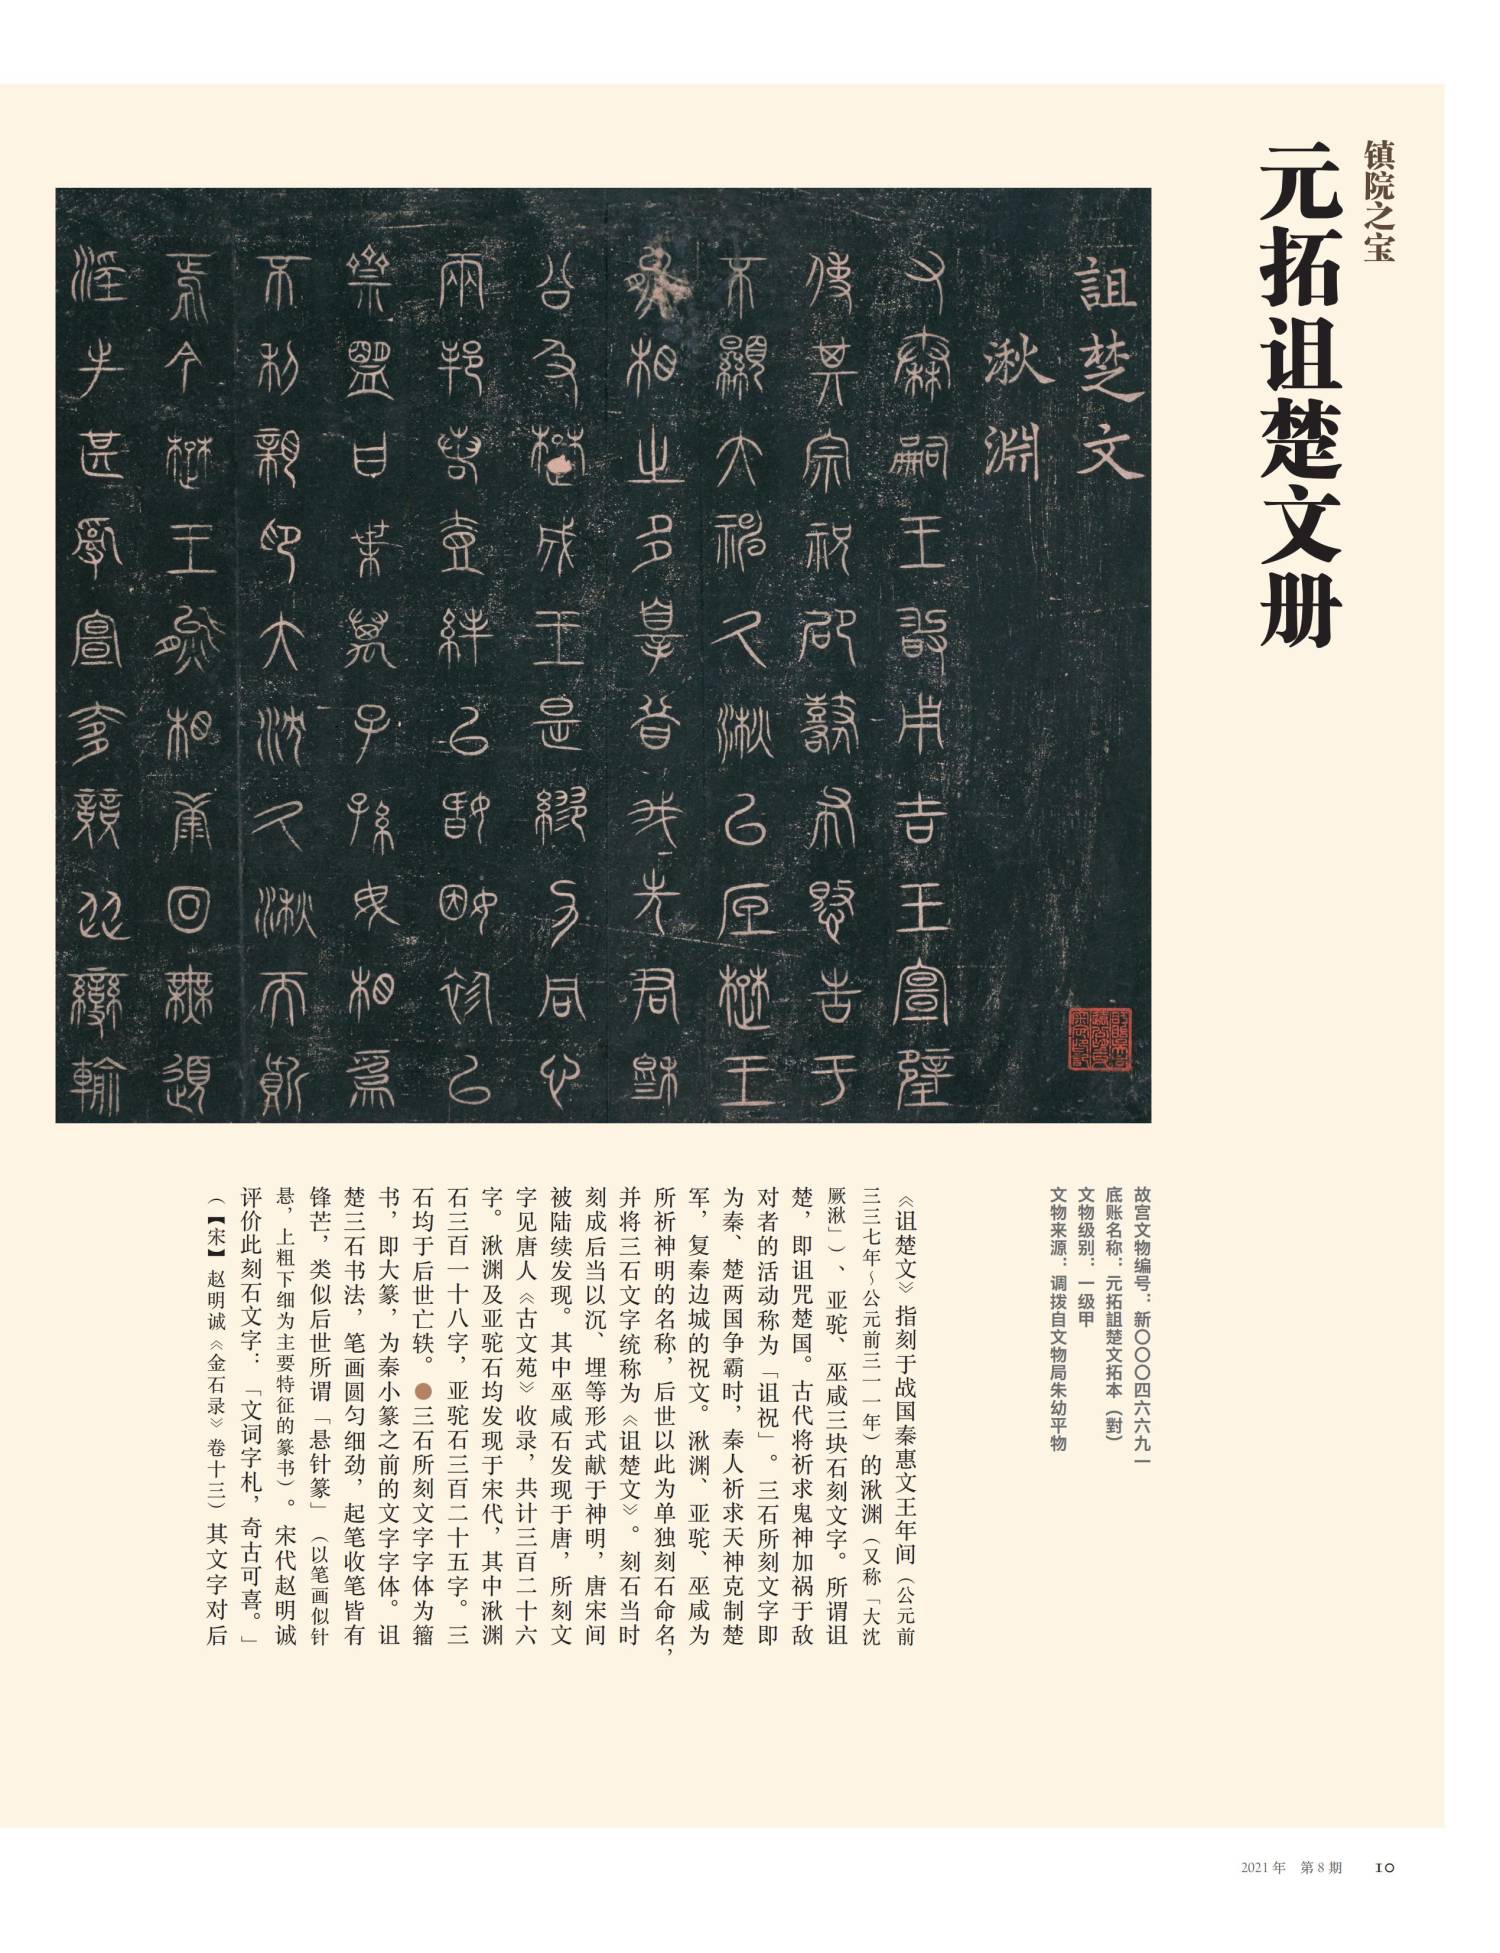 镇院之宝
元拓诅楚文册
詛楚文
湫淵
又秦嗣王敢用吉玉宣璧
使其宗祝邵鼛布憝告于
不顯大神久湫以厎楚王
熊相之多辠昔我先君穆
公及楚成王是繆力同心
兩邦若壹絆以婚姻袗以
齋盟曰枼萬子孫毋相為
不利親卬大沈久湫而質
焉今楚王熊相康回無道
淫失甚亂宣侈競從變輸
故宫文物编号：新〇〇〇四六六九一
底账名称：元拓詛楚文拓本（對）
文物级别：一级甲
文物来源：调拨自文物局朱幼平物
《诅楚文》指刻于战国秦惠文王年间（公元前
三三七年~公元前三一一年）的湫渊（又称「大沈
厥湫」）、亚驼、巫咸三块石刻文字。所谓诅
楚，即诅咒楚国。古代将祈求鬼神加祸于敌
对者的活动称为「诅祝」。三石所刻文字即
为秦、楚两国争霸时，秦人祈求天神克制楚
军，复秦边城的祝文。湫渊、亚驼、巫咸为
所祈神明的名称，后世以此为单独刻石命名，
并将三石文字统称为《诅楚文》。刻石当时
刻成后当以沉、埋等形式献于神明，唐宋间
被陆续发现。其中巫咸石发现于唐，所刻文
字见唐人《古文苑》收录，共计三百二十六
字。湫渊及亚驼石均发现于宋代，其中湫渊
石三百一十八字，亚驼石三百二十五字。三
石均于后世亡轶。●三石所刻文字字体为籀
书，即大篆，为秦小篆之前的文字字体。诅
楚三石书法，笔画圆匀细劲，起笔收笔皆有
锋芒，类似后世所谓「悬针篆」（以笔画似针
悬，上粗下细为主要特征的篆书）。宋代赵明诚
评价此刻石文字：「文词字札，奇古可喜。」
（【宋】赵明诚《金石录》卷十三）其文字对后
2021年 第8期 10